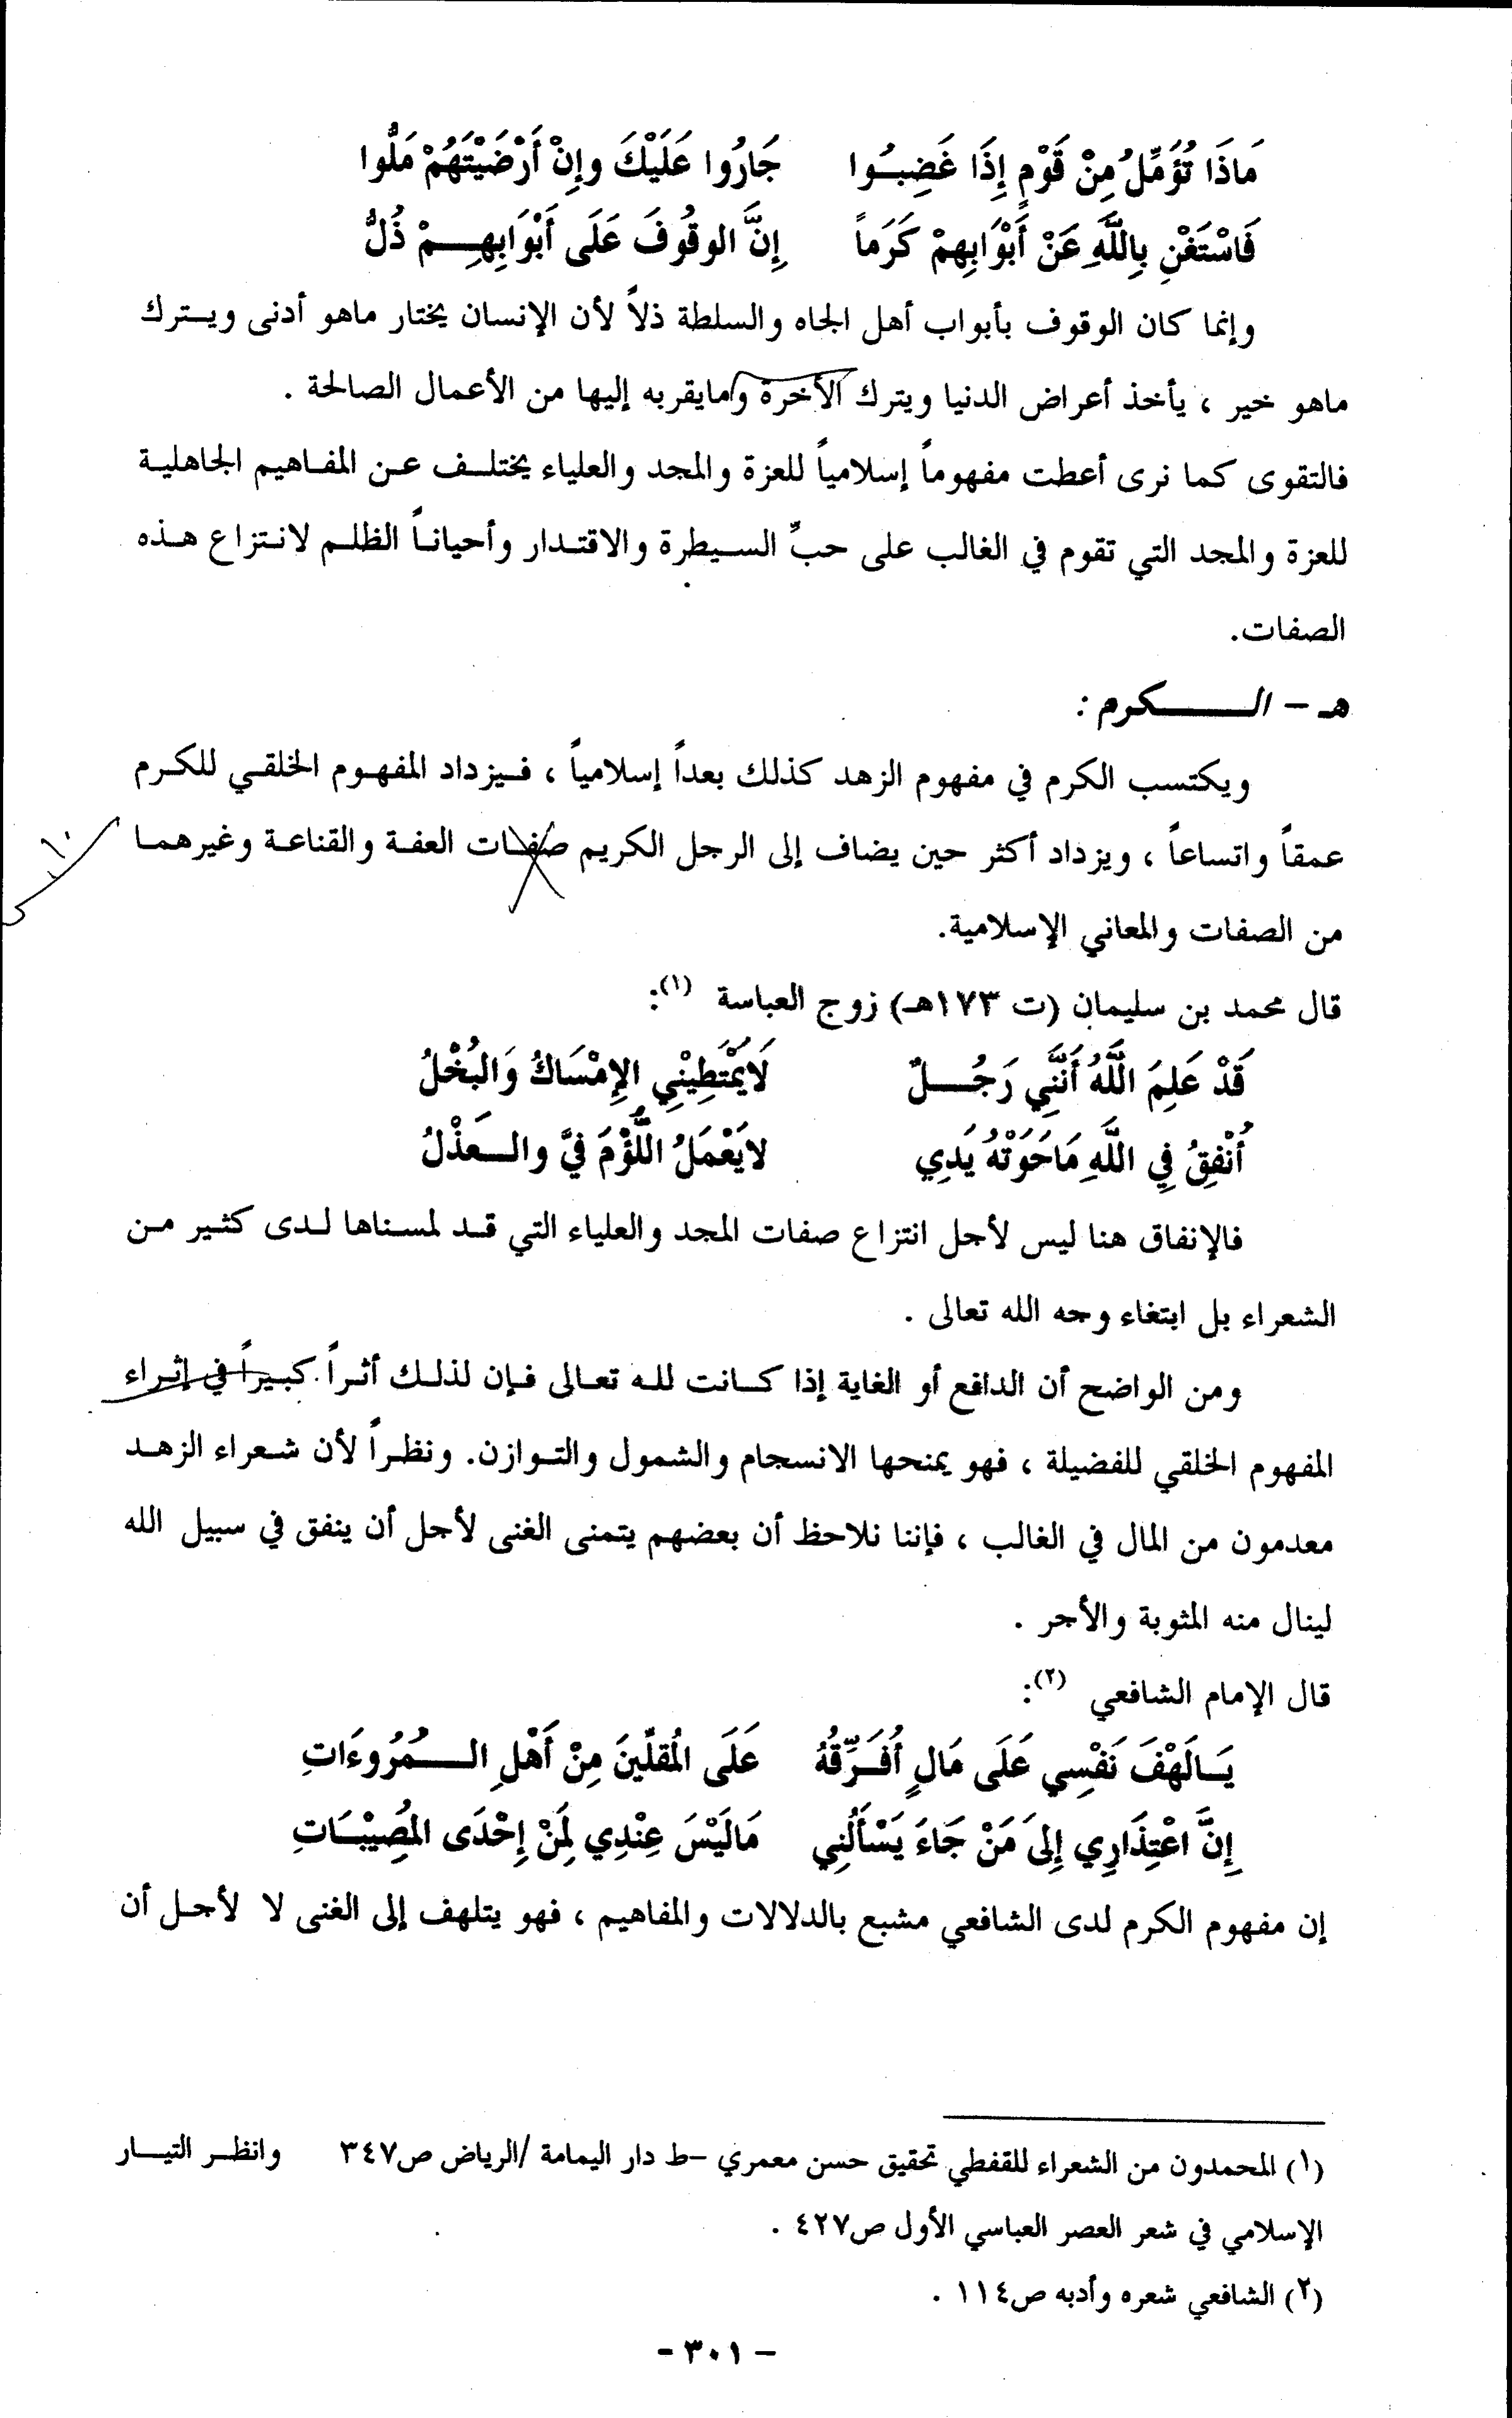 مَاذَا تُؤَمِّلُ مِنْ قَوْمٍ إِذَا غَضِبُوا جَارُوا عَلَيْكَ وإِنْ أَرْضَيْتَهُمْ مَلُّوا
فَاسْتَغْنِ بِاللَّهِ عَنْ أَبْوَابِهِمْ كَرَماً إِنَّ الوقُوفَ عَلَى أَبْوَابِهِمْ ذُلُّ
وإنما كان الوقوف بأبواب أهل الجاه والسلطة ذلاً لأن الإنسان يختار ماهو أدنى ويترك
ماهو خير ، يأخذ أعراض الدنيا ويترك الأخرة ومايقربه إليها من الأعمال الصالحة .
فالتقوى كما نرى أعطت مفهوماً إسلامياً للعزة والمجد والعلياء يختلف عن المفاهيم الجاهلية
للعزة والمجد التي تقوم في الغالب على حبِّ السيطرة والاقتدار وأحياناً الظلم لانتزاع هذه
الصفات.
هـ – الكرم :
ويكتسب الكرم في مفهوم الزهد كذلك بعداً إسلامياً ، فيزداد المفهوم الخلقي للكرم
عمقاً واتساعاً ، ويزداد أكثر حين يضاف إلى الرجل الكريم صفات العفة والقناعة وغيرهما
من الصفات والمعاني الإسلامية.
قال محمد بن سليمان (ت ١٧٣هـ) زوج العباسة (١):
قَدْ عَلِمَ اللَّهُ أَنَّنِي رَجُلٌ لَايَمْتَطِيْنِي الإِمْسَاكُ وَالبُخْلُ
أُنْفِقُ فِي اللَّهِ مَاحَوَتْهُ يَدِي لايَعْمَلُ اللُّؤْمَ فيَّ والعَذْلُ
فالإنفاق هنا ليس لأجل انتزاع صفات المجد والعلياء التي قد لمسناها لدى كثير من
الشعراء بل ابتغاء وجه الله تعالى .
ومن الواضح أن الدافع أو الغاية إذا كانت لله تعالى فإن لذلك أثراً كبيراً في إثراء
المفهوم الخلقي للفضيلة ، فهو يمنحها الانسجام والشمول والتوازن. ونظراً لأن شعراء الزهد
معدمون من المال في الغالب ، فإننا نلاحظ أن بعضهم يتمنى الغنى لأجل أن ينفق في سبيل الله
لينال منه المثوبة والأجر .
قال الإمام الشافعي (٢):
يَالَهْفَ نَفْسِي عَلَى مَالٍ أُفَرِّقُهُ عَلَى المُقلّينَ مِنْ أَهْلِ المُرُوءَاتِ
إِنَّ اعْتِذَارِي إِلىَ مَنْ جَاءَ يَسْأَلُنِي مَالَيْسَ عِنْدِي لَمِنْ إِحْدَى المُصِيْبَاتِ
إن مفهوم الكرم لدى الشافعي مشبع بالدلالات والمفاهيم ، فهو يتلهف إلى الغنى لا لأجل أن
(١) المحمدون من الشعراء للقفطي تحقيق حسن معمري –ط دار اليمامة /الرياض ص٣٤٧ وانظر التيار
الإسلامي في شعر العصر العباسي الأول ص٤٢٧ .
(٢) الشافعي شعره وأدبه ص١١٤ .
– ٣٠١ –